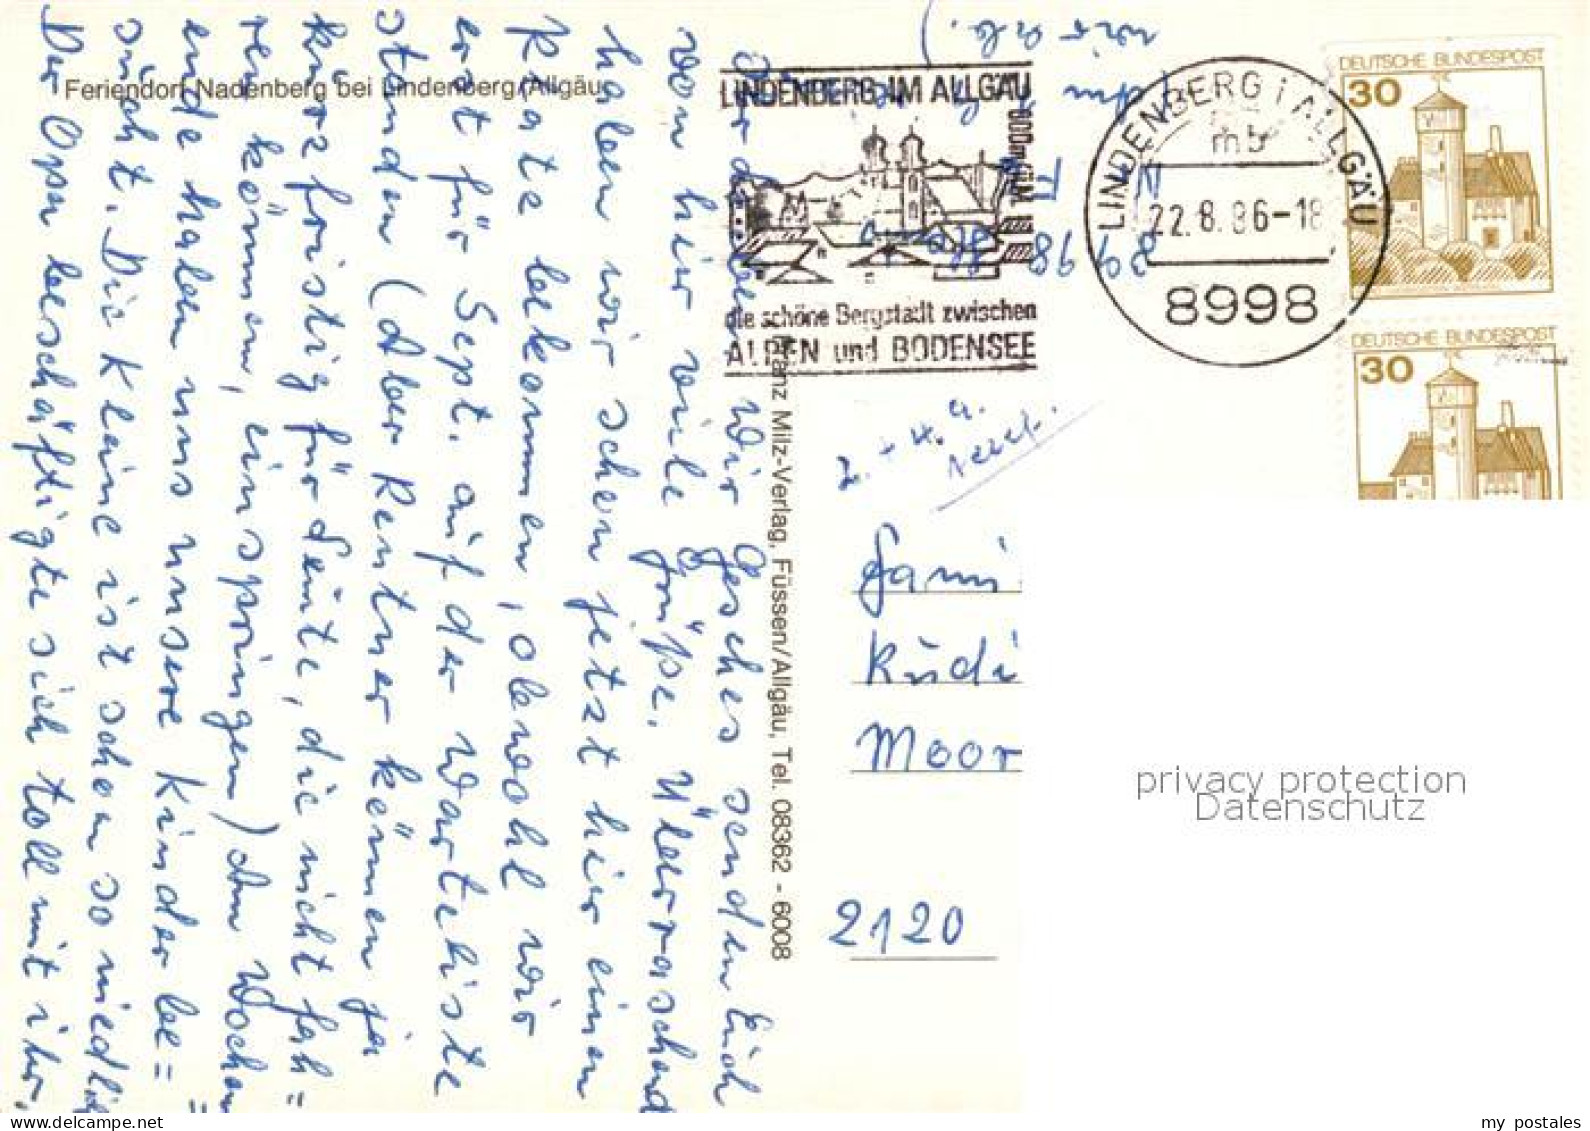 Feriendorf Nadenberg bei Lindenberg/Allgäu
Wir Gesches senden Euch
von hir viele Grüße. Überraschend
haben wir schon jetzt hier einen
Kate bekommen, obwohl wir
erst für Sept. auf der Warteliste
standen (Aber Rentner können ja
kurzfristig für Leute, die nicht fah=
ren können, einspringen) Am Wochen=
ende haben uns unsere Kinder be=
sucht. Die Kleine ist schon so niedlich
Der Opa beschäftigte sich toll mit ihr.
8998
LINDENBERG IM ALLGÄU
800m ü.M.
die schöne Bergstadt zwischen
ALPEN und BODENSEE
LINDENBERG i ALLGÄU
mb
22.8.86-18
8998
DEUTSCHE BUNDESPOST
30
DEUTSCHE BUNDESPOST
30
Franz Milz-Verlag, Füssen/Allgäu, Tel. 08362 - 6008
Fami
Rudi
Moor
2120
privacy protection
Datenschutz
my postales